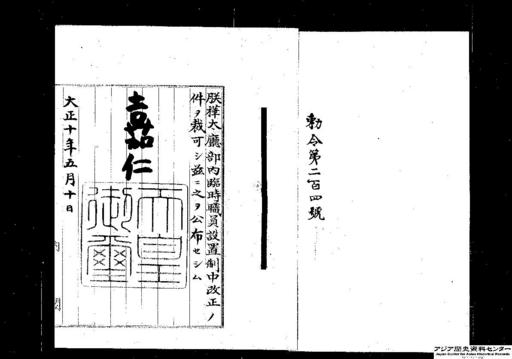 勅令第二百四號
朕樺太廳部内臨時職員設置制中改正ノ
件ヲ裁可シ茲ニ之ヲ公布セシム
嘉仁
天皇
御璽
大正十年五月十日
内閣
アジア歴史資料センター
Japan Center for Asian Historical Records